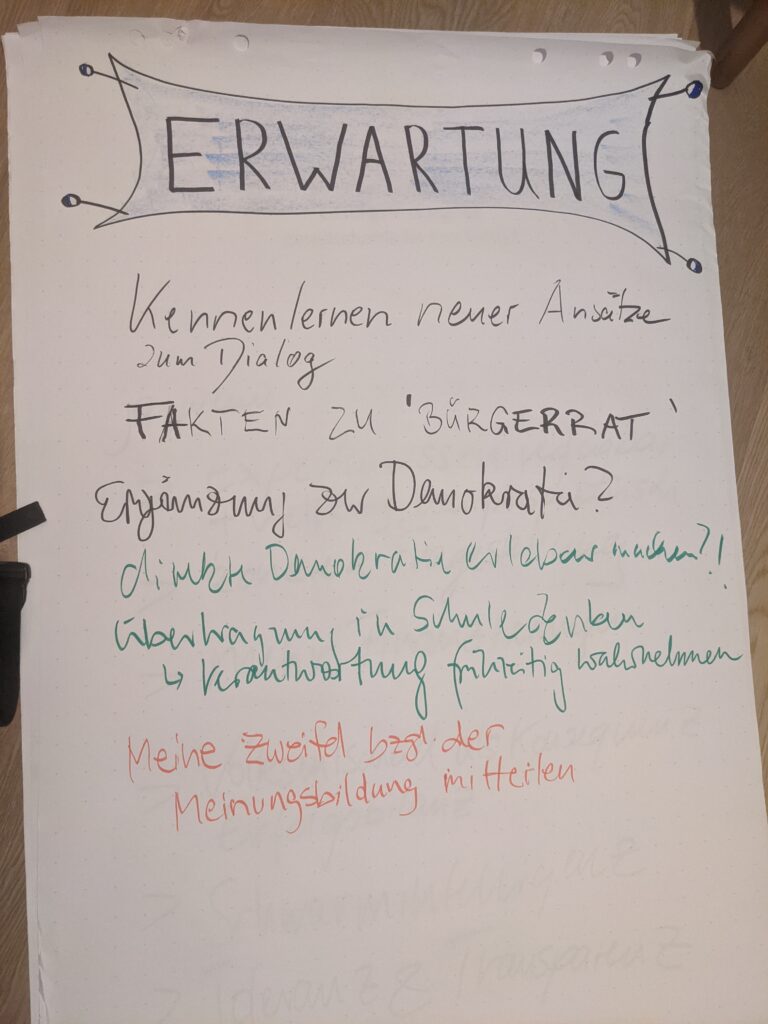 ERWARTUNG
Kennenlernen neuer Ansätze
zum Dialog
FAKTEN ZU 'BÜRGERRAT'
Ergänzung zur Demokratie?
direkte Demokratie erlebbar machen?!
Übertragung in Schule denken
↳ Verantwortung frühzeitig wahrnehmen
Meine Zweifel bzgl. der
Meinungsbildung mitteilen
> Schwarmintelligenz
> Toleranz & Transparenz